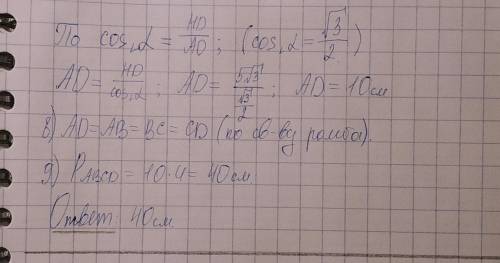 По cos∠α = HD/AD; (cos∠α = √3/2)
AD = HD/cos∠α; AD = 5√3/(√3/2); AD = 10см
8) AD = AB = BC = CD (по св-ву ромба).
9) PABCD = 10·4 = 40см
Ответ: 40см